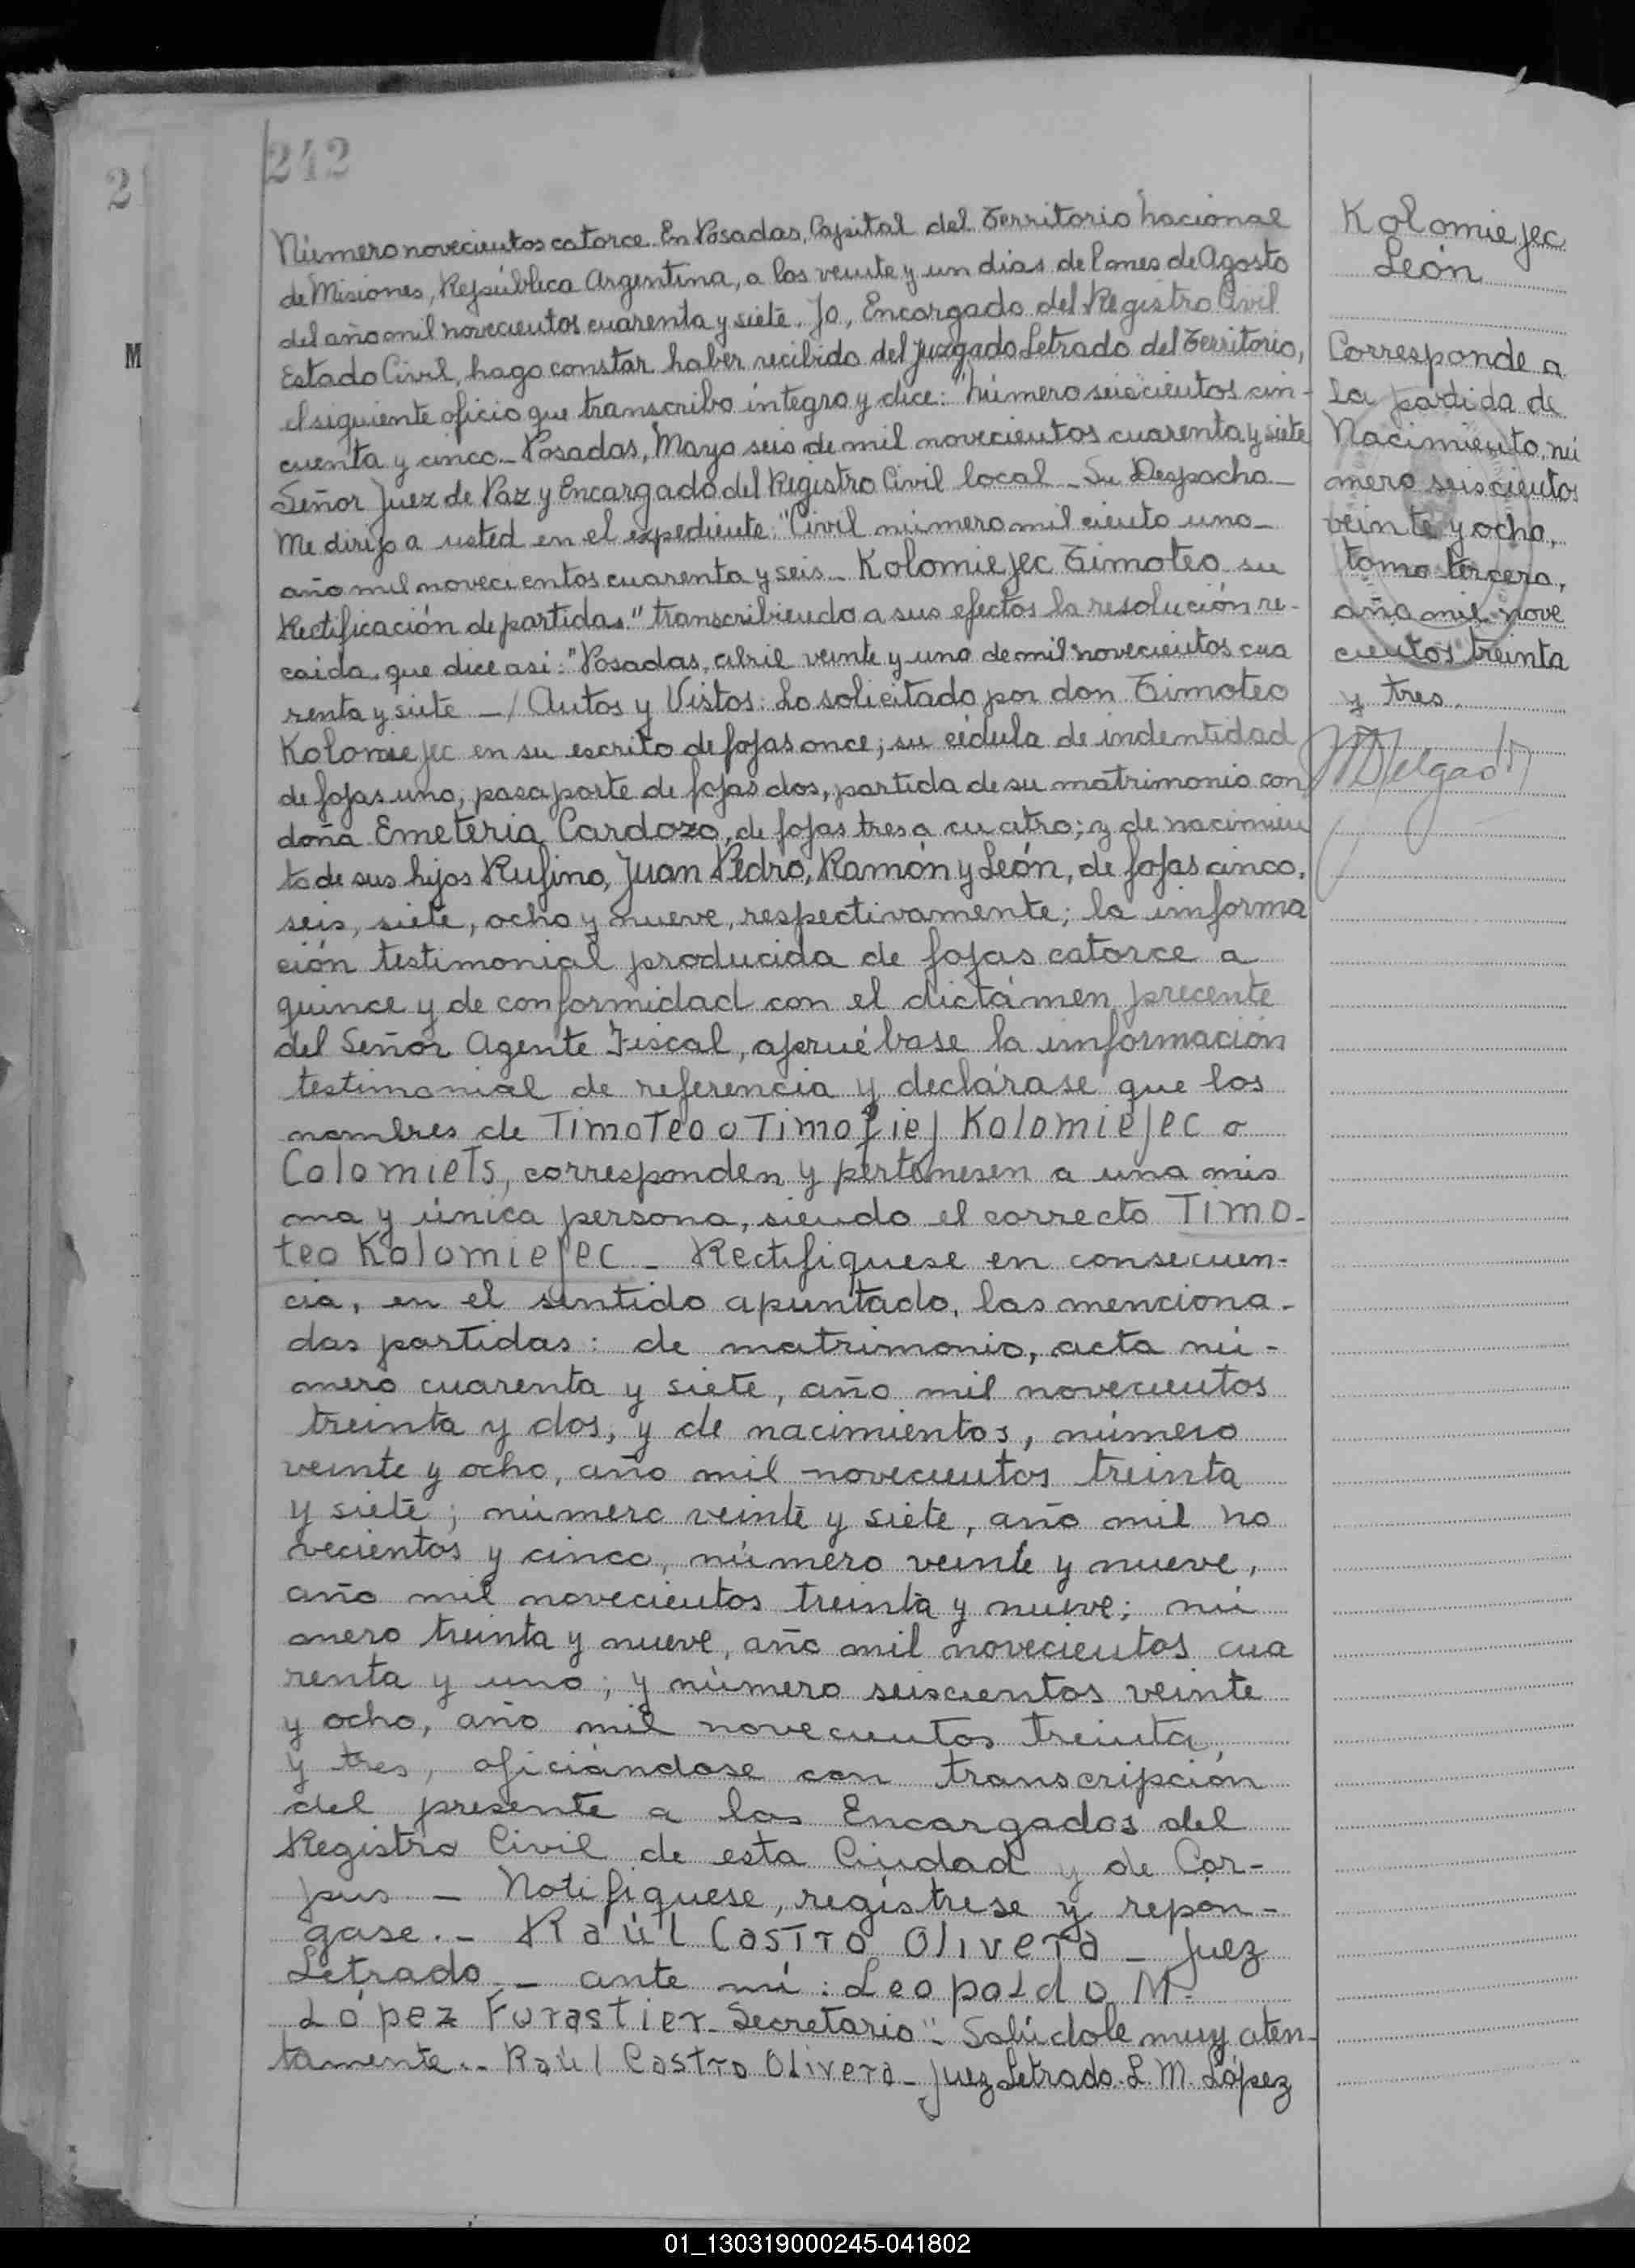 242
2
M
Número novecientos catorce. En Posadas, Capital del Territorio Nacional
de Misiones, República Argentina, a los veinte y un dias del mes de Agosto
del año mil novecientos cuarenta y siete. Yo, Encargado del Registro Civil
Estado Civil, hago constar haber recibido del Juzgado Letrado del Territorio,
el siguiente oficio que transcribo íntegro y dice: "Número seiscientos cin-
cuenta y cinco_ Posadas, Mayo seis de mil novecientos cuarenta y siete
Señor Juez de Paz y Encargado del Registro Civil local _ Su Despacho_
Me dirijo a usted en el expediente: "Civil número mil ciento uno_
año mil novecientos cuarenta y seis_ Kolomiejec Timoteo su
Rectificación de partida." transcribiendo a sus efectos la resolución re-
caida, que dice asi: "Posadas, abril veinte y uno de mil novecientos cua
renta y siete _/ Autos y Vistos: Lo solicitado por don Timoteo
Kolomiejec en su escrito de fojas once; su cédula de indentidad
de fojas uno, pasaporte de fojas dos, partida de su matrimonio con
doña Emeteria Cardozo, de fojas tres a cuatro; y de nacimien
to de sus hijos Rufino, Juan Pedro, Ramón y León, de fojas cinco,
seis, siete, ocho y nueve, respectivamente; la imforma
ción testimonial producida de fojas catorce a
quince y de conformidad con el dictámen precente
del Señor Agente Fiscal, apruébase la imformación
testimonial de referencia y declárase que los
nombres de Timoteo o Timofiej Kolomiejec o
Colomiets, corresponden y pertenesen a una mis
ma y única persona, siendo el correcto Timo-
teo Kolomiejec _ Rectifiquese en consecuen-
cia, en el sentido apuntado, las menciona-
das partidas: de matrimonio, acta nú-
mero cuarenta y siete, año mil novecientos
treinta y dos, y de nacimientos, número
veinte y ocho, año mil novecientos treinta
y siete; número veinte y siete, año mil no
vecientos y cinco, número veinte y nueve,
año mil novecientos treinta y nueve; nú
mero treinta y nueve, año mil novecientos cua
renta y uno; y número seiscientos veinte
y ocho, año mil novecientos treinta
y tres, oficiándose con transcripción
del presente a los Encargados del
Registro Civil de esta Ciudad y de Cor-
pus _ Notifiquese, regístrese y repón-
gase._ Raúl Castro Olivera _ Juez
Letrado _ ante mí: Leopoldo M.
López Forastier_ Secretario"_ Salúdole muy aten-
tamente._ Raúl Castro Olivera_ Juez Letrado. L. M. López
Kolomiejec
León
Corresponde a
la partida de
Nacimiento, nú
mero seiscientos
veinte y ocho,
tomo tercero,
año mil nove
cientos treinta
y tres.
MDelgado
01_130319000245-041802